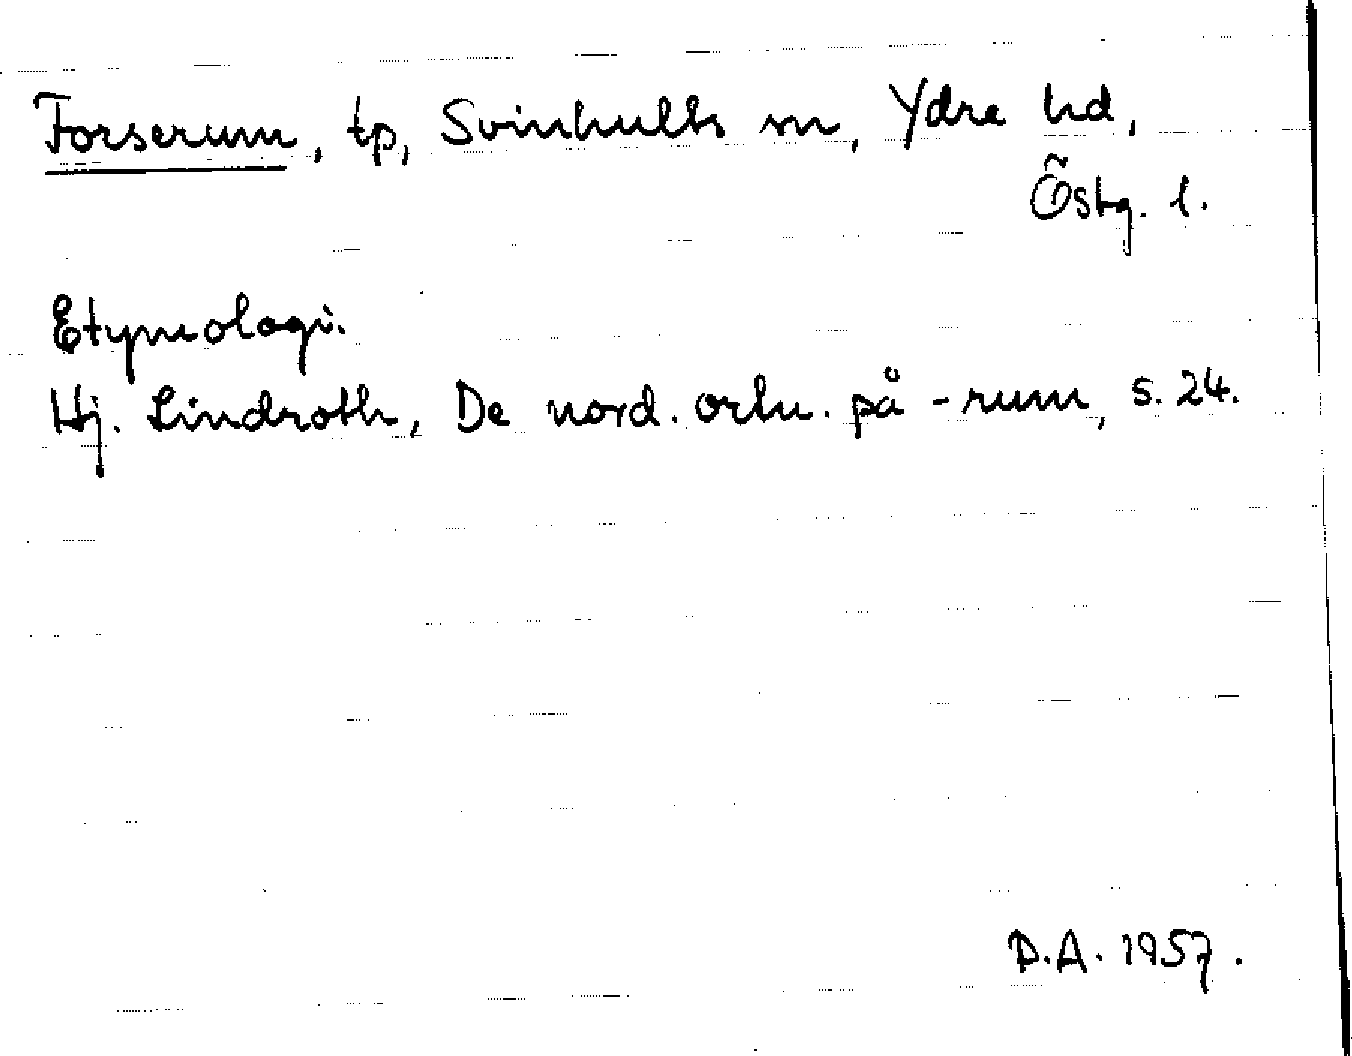 Forserum, tp, Svinhults sn, Ydre hd,
Östg. l.
Etymologi.
Hj. Lindroth, De nord. ortn. på -rum, s. 24.
D.A. 1957.